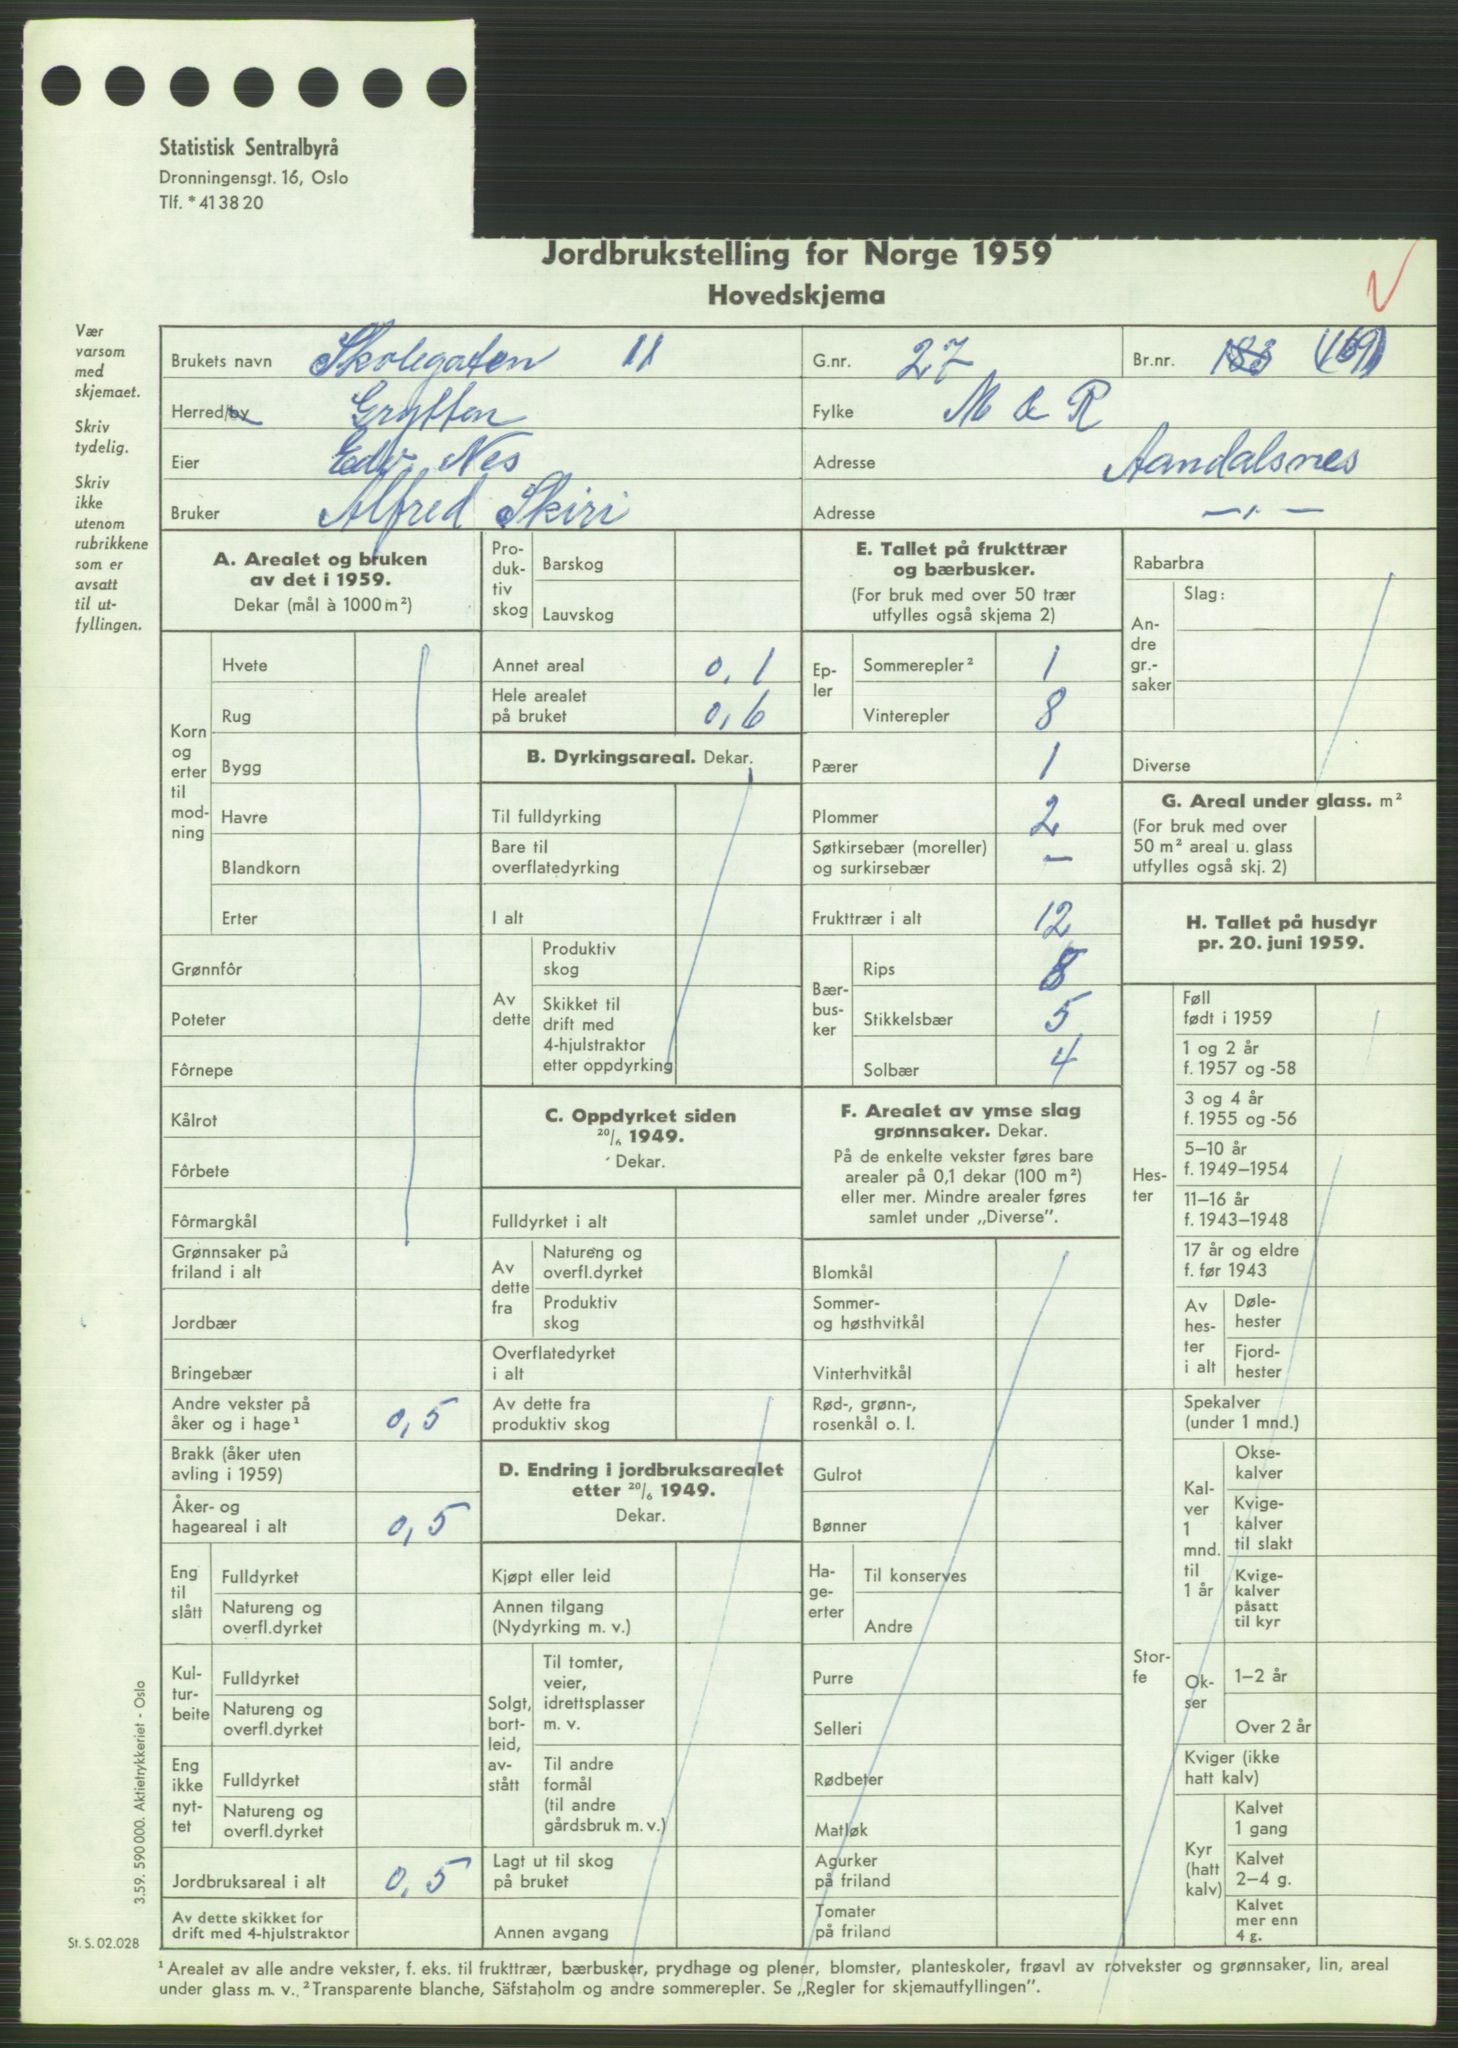 Statistisk Sentralbyrå
Dronningensgt. 16, Oslo
Tlf. *41 38 20
Jordbrukstelling for Norge 1959
Hovedskjema
Vær
varsom
med
skjemaet.
Skriv
tydelig.
Skriv
ikke
utenom
rubrikkene
som er
avsatt
til ut-
fyllingen.
Brukets navn Skolegaten 11 G.nr. 27 Br.nr. 183 (169)
Herred/by Grytten Fylke M & R
Eier Edv. Nes Adresse Aandalsnes
Bruker Alfred Skiri Adresse —„—
A. Arealet og bruken
av det i 1959.
Dekar (mål à 1000 m²)
Korn
og
erter
til
mod-
ning
Hvete
Rug
Bygg
Havre
Blandkorn
Erter
Grønnfôr
Poteter
Fôrnepe
Kålrot
Fôrbete
Fôrmargkål
Grønnsaker på
friland i alt
Jordbær
Bringebær
Andre vekster på
åker og i hage¹ 0,5
Brakk (åker uten
avling i 1959)
Åker- og
hageareal i alt 0,5
Eng
til
slått
Fulldyrket
Natureng og
overfl.dyrket
Kul-
tur-
beite
Fulldyrket
Natureng og
overfl.dyrket
Eng
ikke
nyt-
tet
Fulldyrket
Natureng og
overfl.dyrket
Jordbruksareal i alt 0,5
Av dette skikket for
drift med 4-hjulstraktor
Pro-
duk-
tiv
skog
Barskog
Lauvskog
Annet areal 0,1
Hele arealet
på bruket 0,6
B. Dyrkingsareal. Dekar.
Til fulldyrking
Bare til
overflatedyrking
I alt
Av
dette
Produktiv
skog
Skikket til
drift med
4-hjulstraktor
etter oppdyrking
C. Oppdyrket siden
20/6 1949.
Dekar.
Fulldyrket i alt
Av
dette
fra
Natureng og
overfl.dyrket
Produktiv
skog
Overflatedyrket
i alt
Av dette fra
produktiv skog
D. Endring i jordbruksarealet
etter 20/6 1949.
Dekar.
Kjøpt eller leid
Annen tilgang
(Nydyrking m. v.)
Solgt,
bort-
leid,
av-
stått
Til tomter,
veier,
idrettsplasser
m. v.
Til andre
formål
(til andre
gårdsbruk m. v.)
Lagt ut til skog
på bruket
Annen avgang
E. Tallet på frukttrær
og bærbusker.
(For bruk med over 50 trær
utfylles også skjema 2)
Ep-
ler
Sommerepler² 1
Vinterepler 8
Pærer 1
Plommer 2
Søtkirsebær (moreller)
og surkirsebær —
Frukttrær i alt 12
Bær-
bus-
ker
Rips 8
Stikkelsbær 5
Solbær 4
F. Arealet av ymse slag
grønnsaker. Dekar.
På de enkelte vekster føres bare
arealer på 0,1 dekar (100 m²)
eller mer. Mindre arealer føres
samlet under „Diverse”.
Blomkål
Sommer-
og høsthvitkål
Vinterhvitkål
Rød-, grønn-,
rosenkål o. l.
Gulrot
Bønner
Ha-
ge-
erter
Til konserves
Andre
Purre
Selleri
Rødbeter
Matløk
Agurker
på friland
Tomater
på friland
Rabarbra
An-
dre
gr.-
saker
Slag:
Diverse
G. Areal under glass. m²
(For bruk med over
50 m² areal u. glass
utfylles også skj. 2)
H. Tallet på husdyr
pr. 20. juni 1959.
Hes-
ter
Føll
født i 1959
1 og 2 år
f. 1957 og -58
3 og 4 år
f. 1955 og -56
5–10 år
f. 1949–1954
11–16 år
f. 1943–1948
17 år og eldre
f. før 1943
Av
hes-
ter
i alt
Døle-
hester
Fjord-
hester
Stor-
fe
Spekalver
(under 1 mnd.)
Kal-
ver
1
mnd.
til
1 år
Okse-
kalver
Kvige-
kalver
til slakt
Kvige-
kalver
påsatt
til kyr
Ok-
ser
1–2 år
Over 2 år
Kviger (ikke
hatt kalv)
Kyr
(hatt
kalv)
Kalvet
1 gang
Kalvet
2–4 g.
Kalvet
mer enn
4 g.
3.59. 590 000. Aktietrykkeriet - Oslo
St. S. 02.028
¹ Arealet av alle andre vekster, f. eks. til frukttrær, bærbusker, prydhage og plener, blomster, planteskoler, frøavl av rotvekster og grønnsaker, lin, areal
under glass m. v. ² Transparente blanche, Säfstaholm og andre sommerepler. Se „Regler for skjemautfyllingen”.